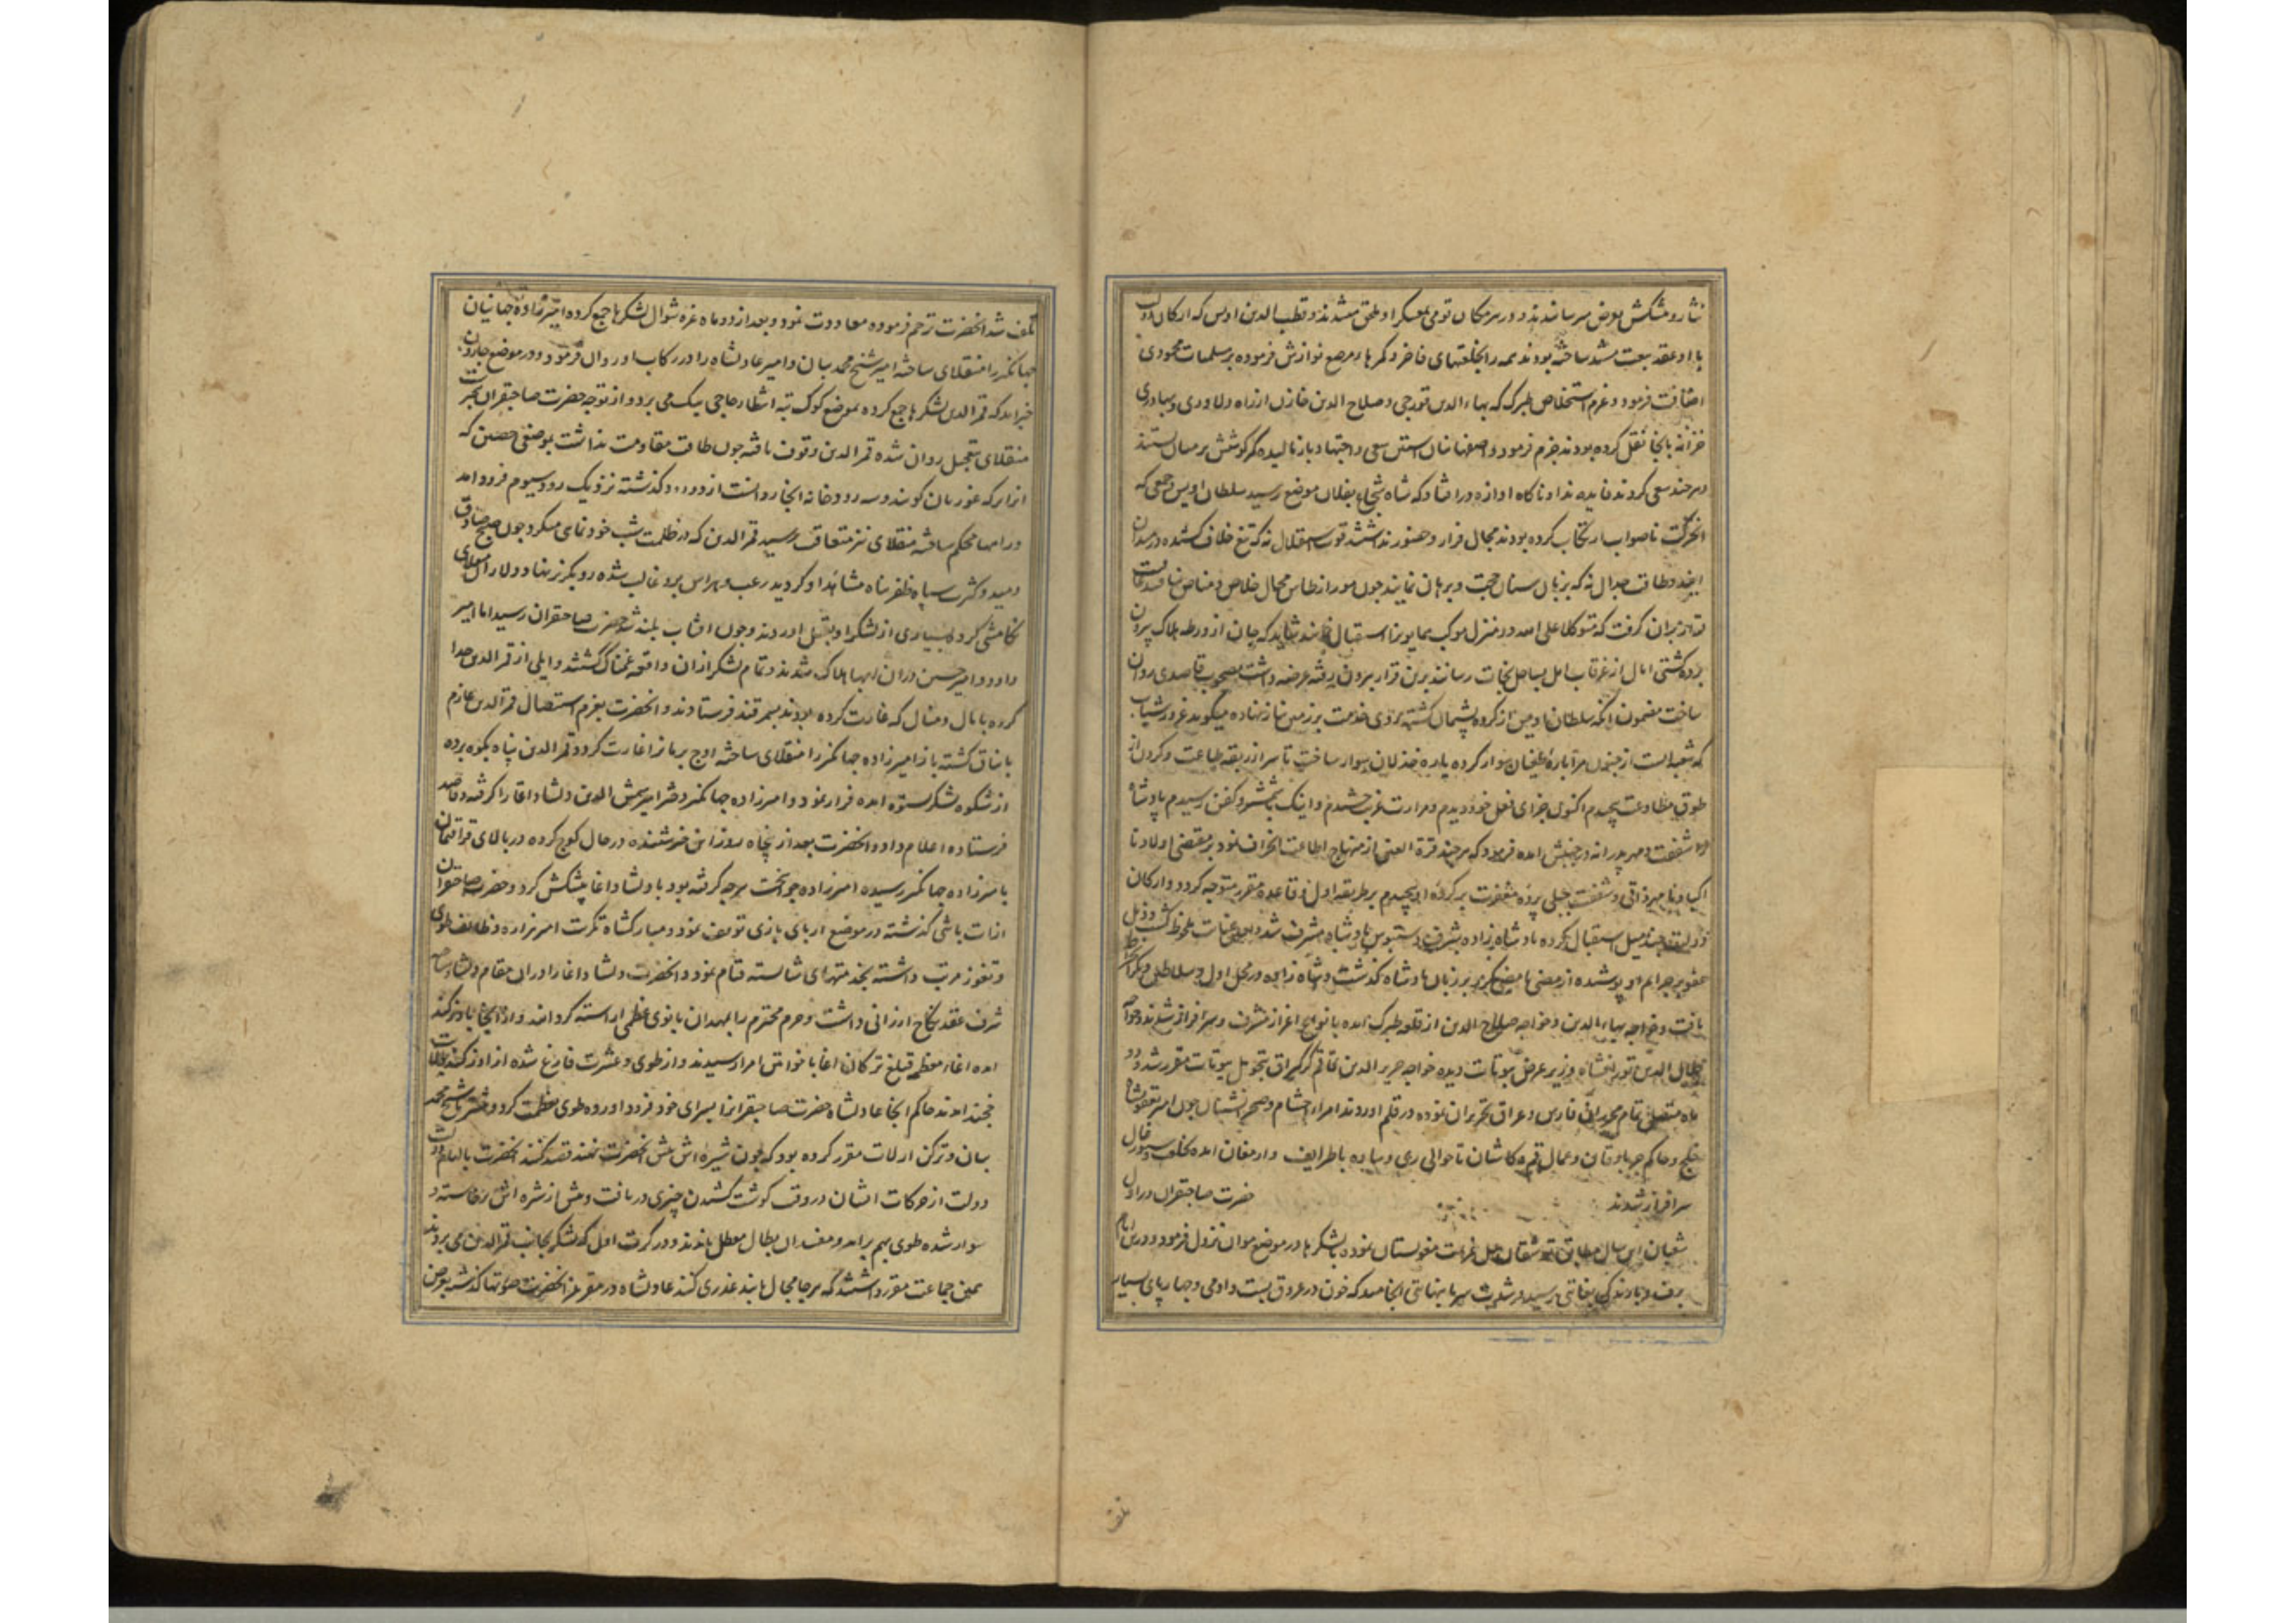 نثار و پیشکش بعرض میرسانیدند و در هر مکان قومی بمعسکر او ملحق میشدند و قطب الدین اویس که ارکان دولت
با او عقد بیعت ساخته بودند همه را بخلعتهای فاخر و کمرهاء مرصع نوازش فرموده بر مسلمات محمودی
اضافت فرمود و عزم استخلاص طبرک که بهاء الدین قورجی و صلاح الدین خازن از راه دلاوری و بهادری
خزانه بانجا نقل کرده بودند جزم فرمود و اصفهانیان سعی و اجتهاد باز مالیده کمر کوشش بر میان بستند
و هر چند سعی کردند فایده نداد ناکاه اوازه در افتاد که شاه شجاع بفلان موضع رسید سلطان اویس و جمعی که
حرکت ناصواب ارتکاب کرده بودند مجال فرار و حضور نداشتند قوت استقلال نه که تیغ خلاف کشیده در میدان
ایند و طاقت جدال نه که بزبان سنان حجت و برهان نمایند چون مور از طاس مجال خلاص و مناص نیافتند عاقبت
قرار بران گرفت که متوکلا علی الله دو منزل موکب همایون را استقبال نمایند شاید که جان از ورطه هلاک بیرون
برده کشتی امال از غرقاب امل بساحل نجات رسانند برین قرار بیرون رفته عرضه داشت مصحوب قاصدی روان
ساخت مضمون انکه سلطان اویس از کرده پشیمان کشته روی خدمت بر زمین نیاز نهاده میکوید غرور شباب
که شعبه ایست از جنون مرا باره طغیان سوار کرده بادیه خذلان سوار ساخت تا سر از ربقه طاعت و کردن از
طوق مطاوعت پیچیدم اکنون جزای فعل خود دیدم و مرارت غربت چشیدم و اینک با شمشیر و کفن رسیدم پادشاه را
شفقت و مهر پدرانه در جنبش امده فرمود که هر چند قرة العین از منهاج اطاعت انحراف نمود بر مقتضی اولادنا
اکبادنا مهر ذاتی و شفقت جبلی پرده مغفرت بر کرده او پوشیدم بر طریقه اول و قاعده مقرر متوجه کردد و ارکان
دولت چند میل استقبال کرده پادشاه زاده بشرف دستبوس پادشاه مشرف شد و بعین عنایت ملحوظ کشت و ذیل
عفو بر جرایم او پوشیده از مضی ما مضی بر زبان پادشاه کذشت و شاه زاده در محل اول و سلاطین دیگر
یافت و خواجه بهاء الدین و خواجه صلاح الدین از قلعه طبرک امده بانواع اعزاز مشرف و سرافراز شدند و خواجه
جلال الدین تورانشاه وزیر عرض بیوتات دیده خواجه حریر الدین بتحویل بیوتات مقرر شد و در
ماه متقضی تمام محرران فارس و عراق تحریر ان نموده در قلم اوردند امراء احشام و صحرانشینان چون امیر یعقوبشاه
خلج و حاکم جربادقان و عمال قم و کاشان تا حوالی ری و ساوه با طرایف و ارمغان امده بخلعت و سیورغال
سرافراز شدند حضرت صاحبقران در اول
شعبان این سال مطابق توشقان ییل عزیمت مغولستان نموده با لشکرها در موضع نزول فرمود و درین ایام
برف و بارندگی بغایتی رسید و شدت سرما بنهایتی انجامید که خون در عروق بست و ادمی و چهارپای بسیار
تلف
تلف شد انحضرت ترحم فرموده معاودت نمود و بعد از دو ماه غره شوال لشکرها جمع کرده امیرزاده جهانیان
جهانکیر را منقلای ساخته امیر شیخ محمد بیان و امیر عادلشاه را در رکاب او روان فرمود و در موضع جارون
خبر امد که قمر الدین لشکرها جمع کرده بموضع کوک تپه انتظار حاجی بیک می برد و از توجه حضرت صاحبقران
منقلای بتعجیل روان شده قمر الدین وقوف یافته چون طاقت مقاومت نداشت بموضعی حصین که
انرا برکه غوریان کویند و سه رودخانه انجا روانست از دو رود کذشته نزدیک رود سیوم فرود امد
و راهها محکم ساخته منقلای نیز متعاقب برسید قمر الدین که در ظلمت شب خود نمایی میکرد چون صبح صادق
دمید و کثرت سپاه ظفر پناه مشاهده او کردید رعب و هراس برو غالب شده رو بکریز نهاد
تکامشی کرده بسیاری از لشکر او بقتل اوردند و چون افتاب بلند شد حضرت صاحبقران رسید اما امیر
داود و امیر حسین دران هلاک شدند و تمام لشکر ازان واقعه غمناک کشتند و ایلی از قمر الدین جدا
کرده با مال و منال که غارت کرده بودند بسمرقند فرستادند و انحضرت بعزم استیصال قمر الدین عازم
کشته باز امیرزاده جهانکیر را منقلای ساخته اوج را غارت کرد و قمر الدین پناه بکوه برده
از شکوه لشکر ستوه امده فرار نمود و امیرزاده جهانکیر دختر امیر شمس الدین دلشاد اغا را کرفته و قاصد
فرستاده اعلام داد و انحضرت بعد از پنجاه روز این خبر شنیده در حال کوچ کرده در بالای قرا قسمان
با میرزاده جهانکیر رسیده امیرزاده جوانبخت هر چه کرفته بود با دلشاد اغا پیشکش کرد و حضرت صاحبقران
از ات باشی کذشته در موضع اربای یازی توقف نمود و مبارکشاه مکریت امیر هزاره وظایف طوی
و تغوز مرتب داشته بخدمتهای شایسته قیام نمود و انحضرت دلشاد اغا را دران مقام
شرف عقد نکاح ارزانی داشت و حرم محترم را بانوی عظمی اراسته کردانید و از انجا باوزکند
امده اغاء معظم قتلغ ترکان اغا با خواتین و امرا رسیدند و از طوی و عشرت فارغ شده از اوزکند
خجند امدند حاکم انجا عادلشاه حضرت صاحبقران را بسرای خود فرود اورده طوی عظمت کرد و شیخ محمد
بیان و ترکن ارلات مقرر کرده بود که چون شیره اش پیش انحضرت نهند قصد کنند انحضرت بالهام
دولت از حرکات ایشان در وقت کوشت کشیدن چیزی دریافت و پیش از شیره اش برخاسته و
سوار شده طوی بهم برامد و مفسدان بطال معطل ماندند و در کرت اول که لشکر بجانب قمر الدین می بردند
همین جماعت مقرر داشتند که هر جا مجال یابند غدری کنند عادلشاه در مقر عز انحضرت کذشته بعرض